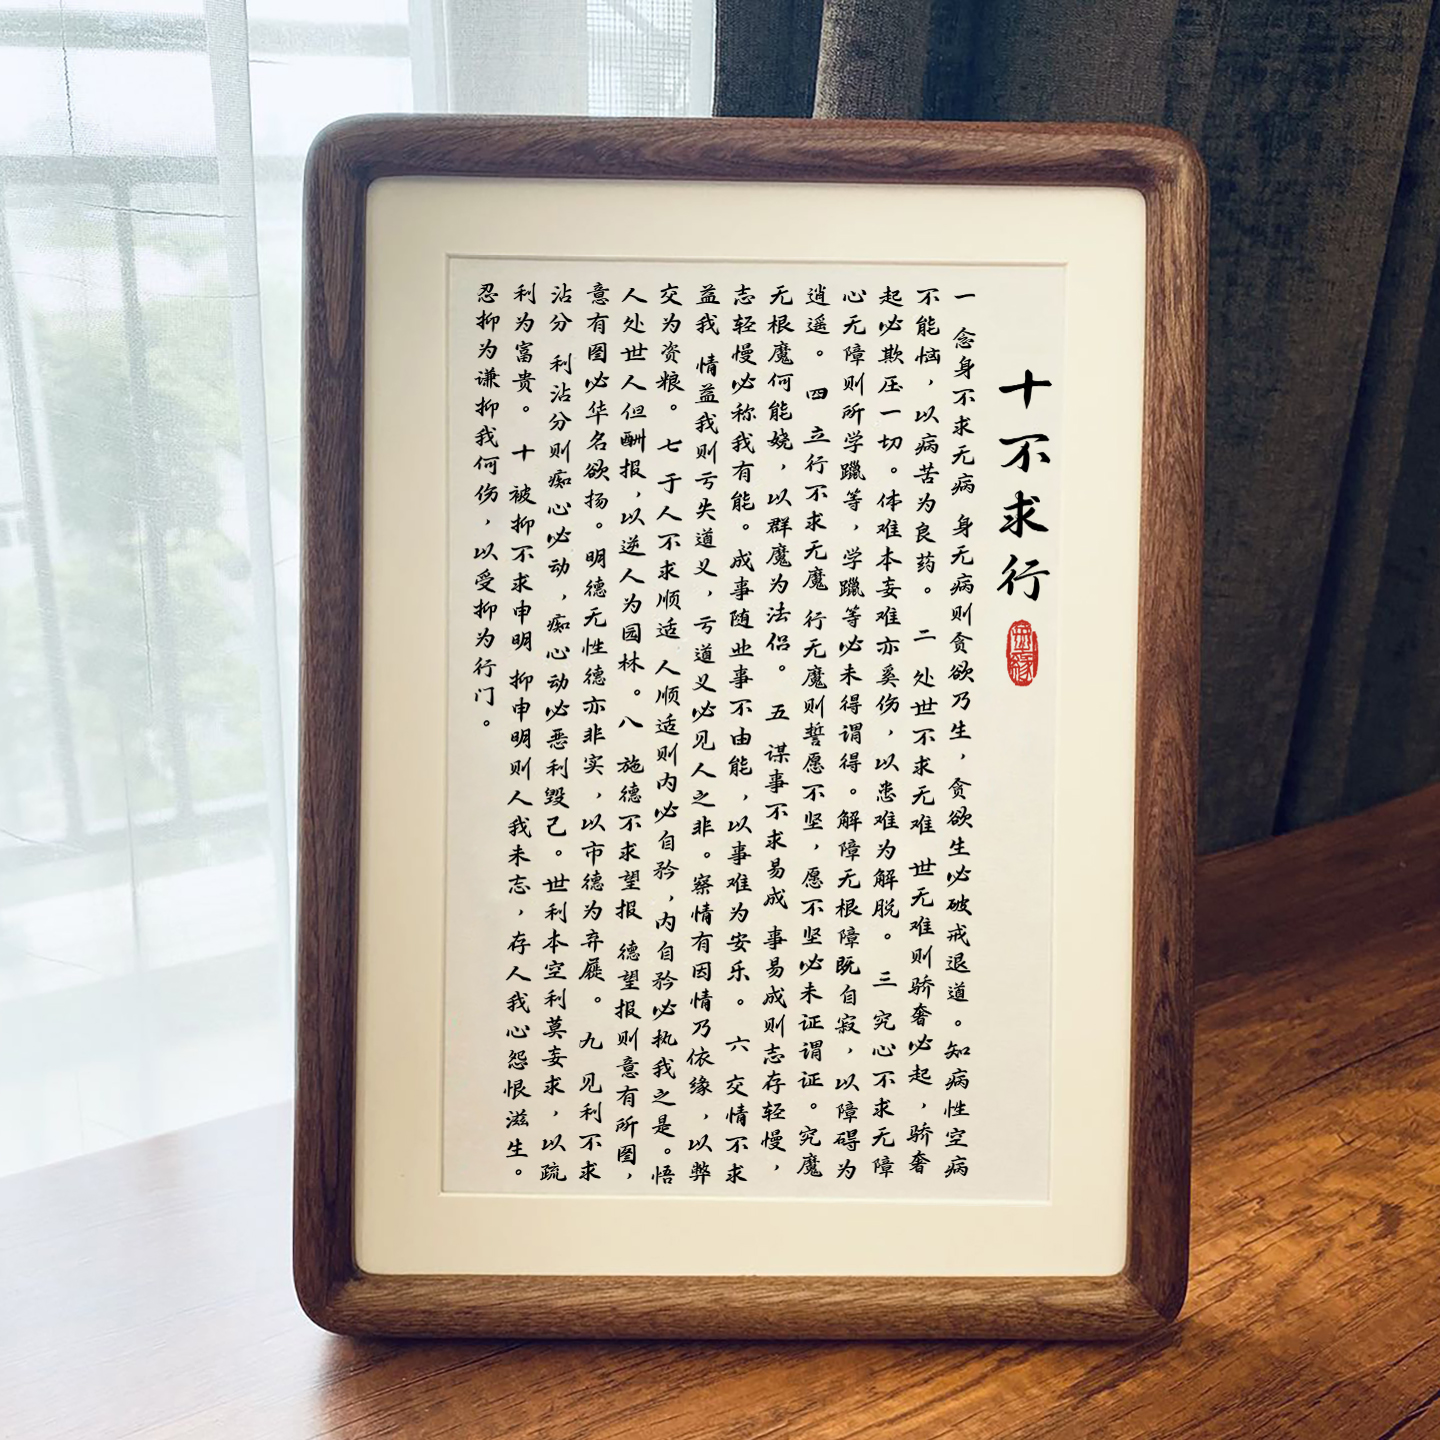 十不求行
一 念身不求无病 身无病则贪欲乃生，贪欲生必破戒退道。知病性空病
不能恼，以病苦为良药。 二 处世不求无难 世无难则骄奢必起，骄奢
起必欺压一切。体难本妄难亦奚伤，以患难为解脱。 三 究心不求无障
心无障则所学躐等，学躐等必未得谓得。解障无根障既自寂，以障碍为
逍遥。 四 立行不求无魔 行无魔则誓愿不坚，愿不坚必未证谓证。究魔
无根魔何能娆，以群魔为法侣。 五 谋事不求易成 事易成则志存轻慢，
志轻慢必称我有能。成事随业事不由能，以事难为安乐。 六 交情不求
益我 情益我则亏失道义，亏道义必见人之非。察情有因情乃依缘，以弊
交为资粮。 七 于人不求顺适 人顺适则内必自矜，内自矜必执我之是。悟
人处世人但酬报，以逆人为园林。八 施德不求望报 德望报则意有所图，
意有图必华名欲扬。明德无性德亦非实，以市德为弃屣。 九 见利不求
沾分 利沾分则痴心必动，痴心动必恶利毁己。世利本空利莫妄求，以疏
利为富贵。 十 被抑不求申明 抑申明则人我未忘，存人我心怨恨滋生。
忍抑为谦抑我何伤，以受抑为行门。